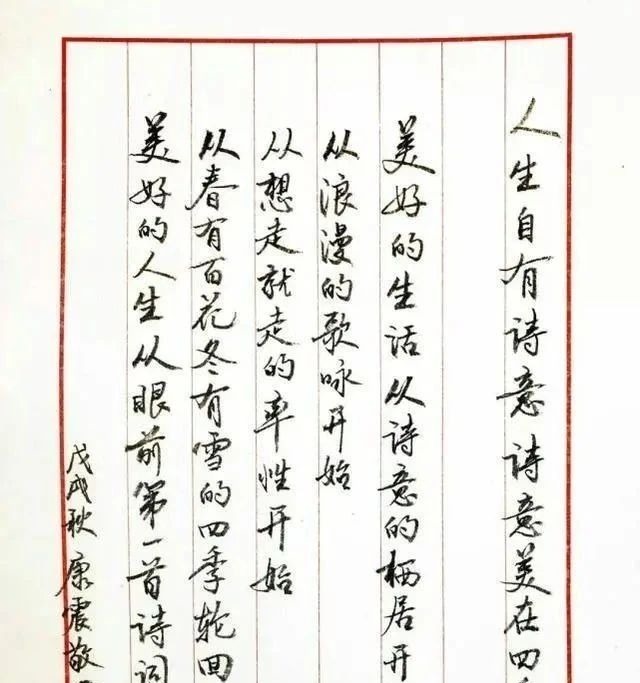 人生自有诗意诗意美在四
美好的生活从诗意的栖居开
从浪漫的歌咏开始
从想走就走的率性开始
从春有百花冬有雪的四季轮回
美好的人生从眼前第一首诗词
戊戌秋 康震敬